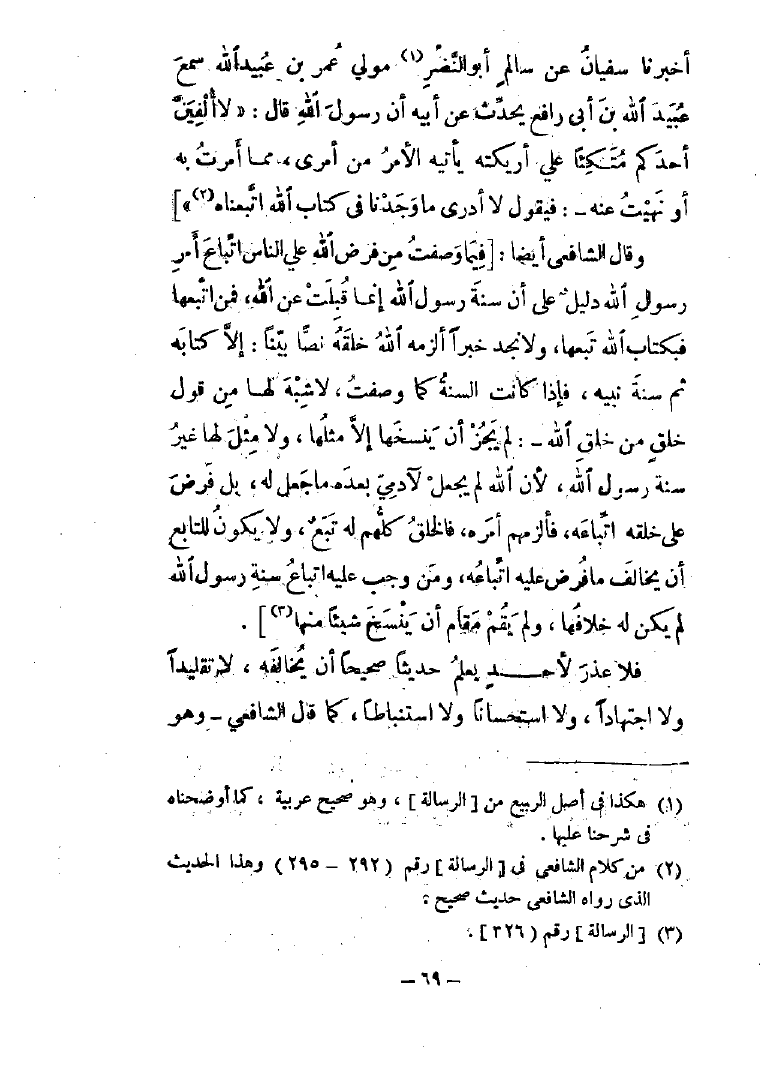 أخبرنا سفيانُ عن سالمٍ أبو النَّضْرِ (١) مولي عُمر بن عُبيد ٱلله سمعَ
عُبيدَ ٱلله بنَ أبى رافع يحدِّث عن أبيه أن رسولَ ٱللهِ قال : « لا أُلْفِيَنَّ
أحدَكم مُتَّكِئًا علي أريكته يأتيه الأمرُ من أمرى ، مما أَمرتُ به
أو نَهَيْتُ عنه – : فيقول لا أدرى ما وَجَدْنا فى كتاب ٱلله اتَّبعناه (٢) » ]
وقال الشافعى أيضا : [ فِيمَا وَصفتُ مِن فرض ٱللهِ علي الناس اتِّباعَ أَمرِ
رسولِ ٱلله دليلٌ على أن سنةَ رسولِ ٱلله إنما قُبِلَتْ عن ٱللهِ، فمن اتَّبعها
فبكتاب ٱلله تَبعها، ولا نجد خبراً ألزمه ٱللهُ خلقَهُ نصًّا بيِّنًا : إلاَّ كتابَه
ثم سنةَ نبيه ، فإذا كانت السنةُ كما وصفتُ ، لا شِبْهَ لها مِن قول
خلقٍ من خلقِ ٱلله – : لم يَجُزْ أن يَنسخَها إلاَّ مثلُها ، ولا مِثْلَ لها غيرُ
سنة رسولِ ٱلله ، لأن ٱلله لم يجعلْ لآدميّ بعدَه ما جَعل له، بل فَرضَ
على خلقه اتِّباعَه، فألزمهم أمرَه، فالخلقُ كلُّهم له تَبَعٌ ، ولا يكونُ للتابع
أن يخالفَ ما فُرض عليه اتِّباعُه، ومَن وجب عليه اتباعُ سنةِ رسولِ ٱلله
لم يكن له خلافُها ، ولم يَقُمْ مَقام أن يَنْسَخَ شيئًا منها (٣) ] .
فلا عذرَ لأحدٍ يعلمُ حديثاً صحيحاً أن يُخالفَه ، لا تقليداً
ولا اجتهاداً ، ولا استحساناً ولا استنباطاً ، كما قال الشافعي – وهو
(١) هكذا فى أصل الربيع من [ الرسالة ] ، وهو صحيح عربية ، كما أوضحناه
فى شرحنا عليها .
(٢) من كلام الشافعى فى [ الرسالة ] رقم ( ٢٩٢ – ٢٩٥ ) وهذا الحديث
الذى رواه الشافعى حديث صحيح .
(٣) [ الرسالة ] رقم ( ٣٢٦ ] .
– ٦٩ –